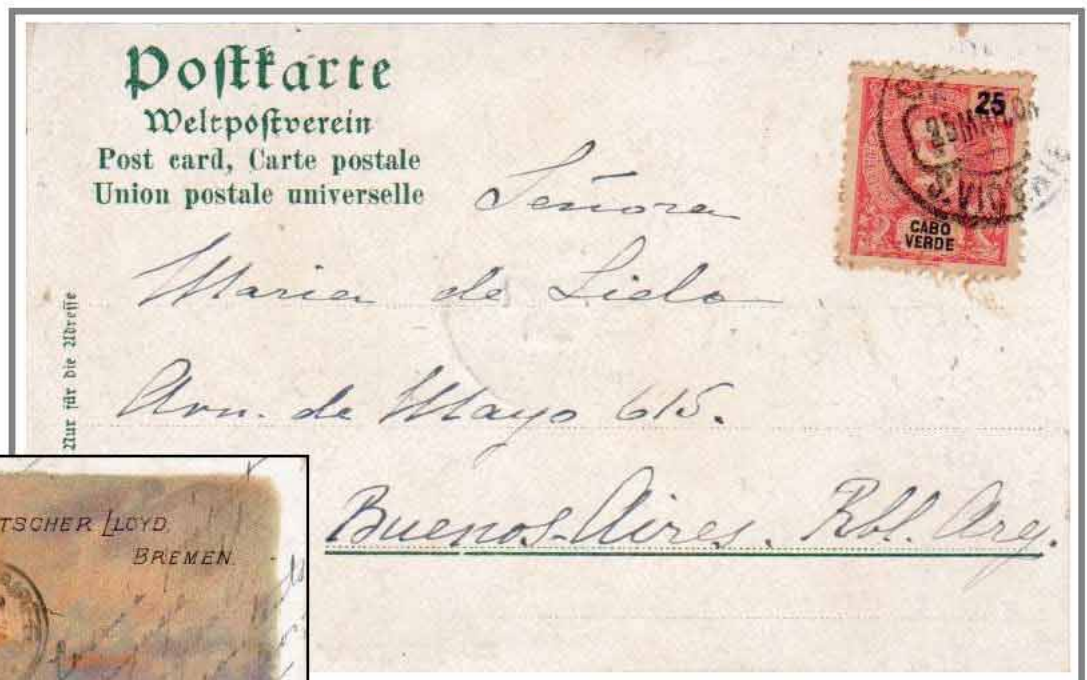 Postkarte
Weltpostverein
Post card, Carte postale
Union postale universelle
Nur für die Adresse
25
CABO
VERDE
S. VIC
Señora
Maria de Lielo
Avn. de Mayo 615.
Buenos-Aires. Rbl. Arg.
TSCHER LLOYD.
BREMEN.